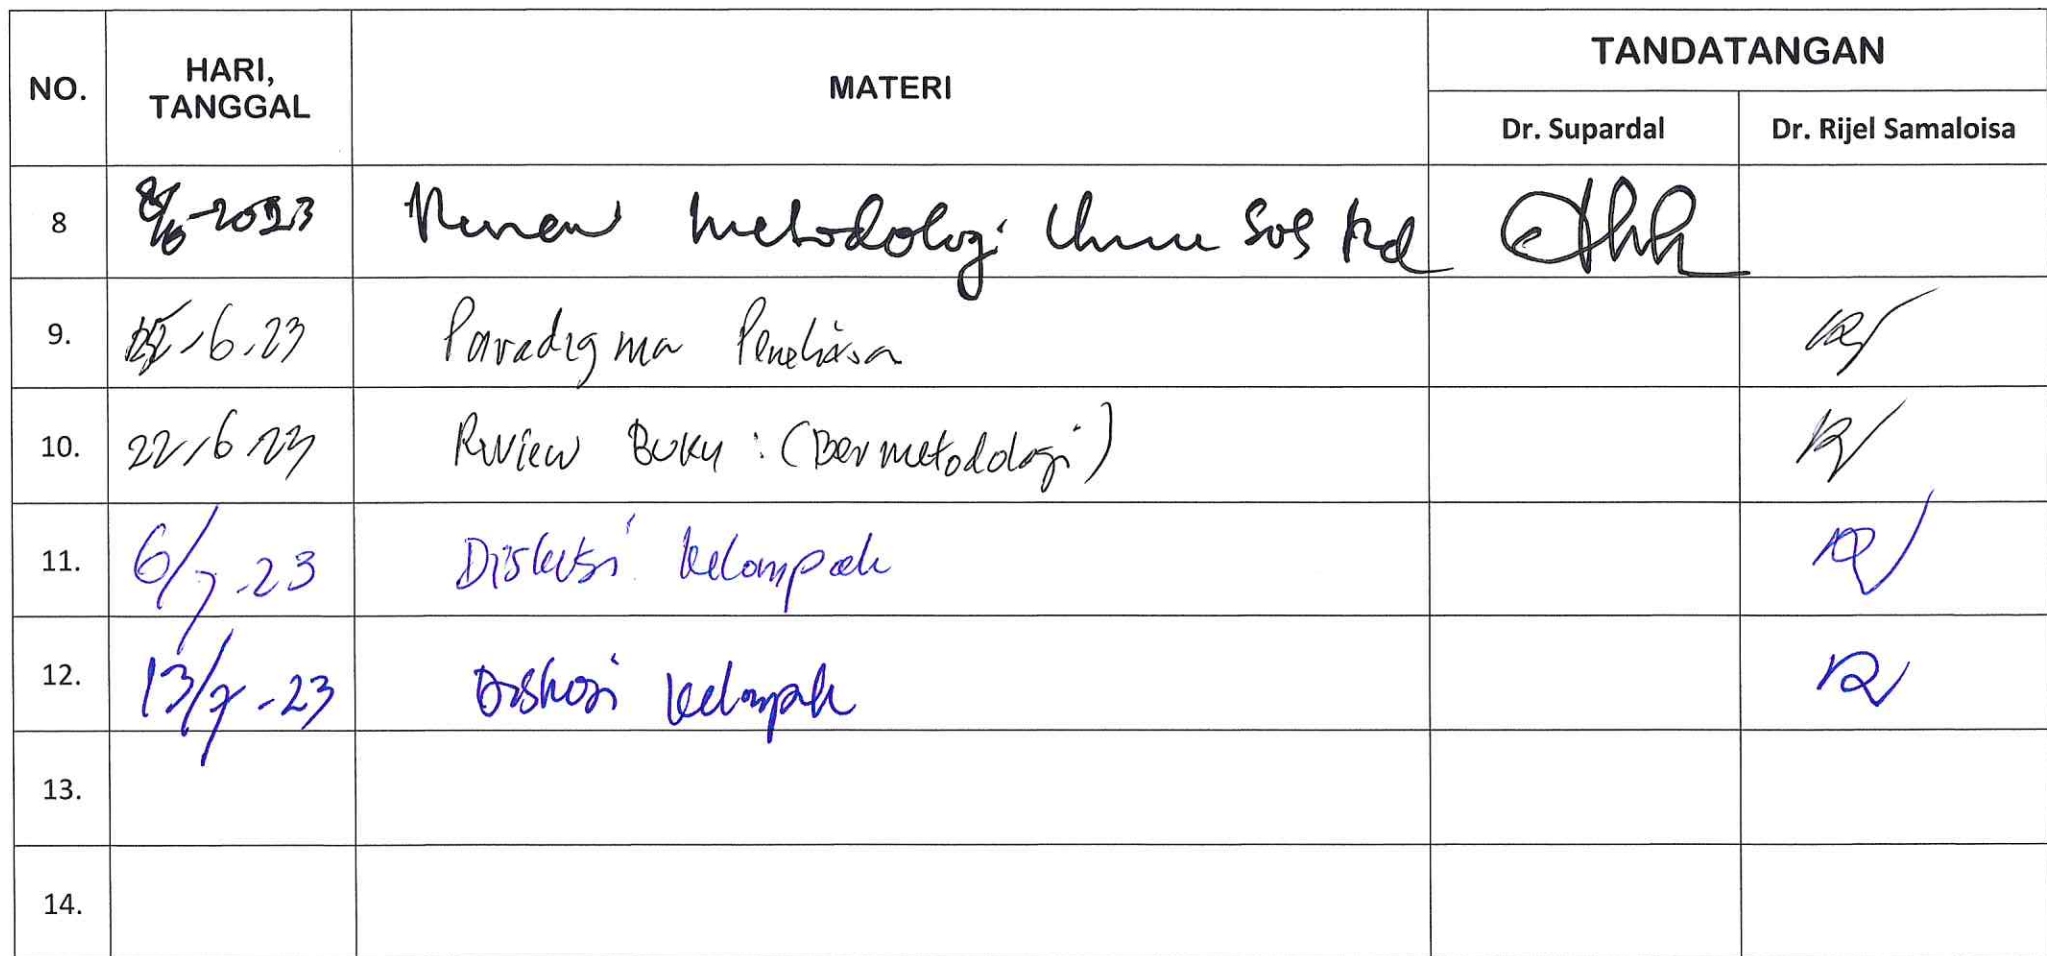 NO. HARI, TANGGAL MATERI TANDATANGAN
Dr. Supardal Dr. Rijel Samaloisa
8 8/6-2023 Review Metodologi Ilmu Sos
9. 6.23 Paradigma
10. 22/6 23 Review Buku : (Bermetodologi)
11. 6/7-23 Diskusi kelompok
12. 13/7-23 Diskusi kelompok
13.
14.